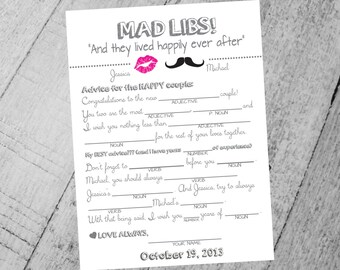 MAD LIBS!
"And they lived happily ever after"
Jessica Michael
Advice for the HAPPY couple:
Congratulations to the new ____________ couple!
ADJECTIVE
You two are the most ____________ ____________ and
ADJECTIVE NOUN
I wish you nothing less than ____________
____________ for the rest of your lives together.
NOUN
My BEST advice??? (and I have years ____________ of experience)
NUMBER
Don't forget to ____________ before you ____________
VERB
Michael, you should always ____________
VERB NOUN
Jessica's ____________ And Jessica, try to always
NOUN
____________ Michael's ____________
VERB NOUN
With that being said, I wish you ____________ years of ____________
NUMBER NOUN
LOVE ALWAYS,
YOUR NAME
October 19, 2013